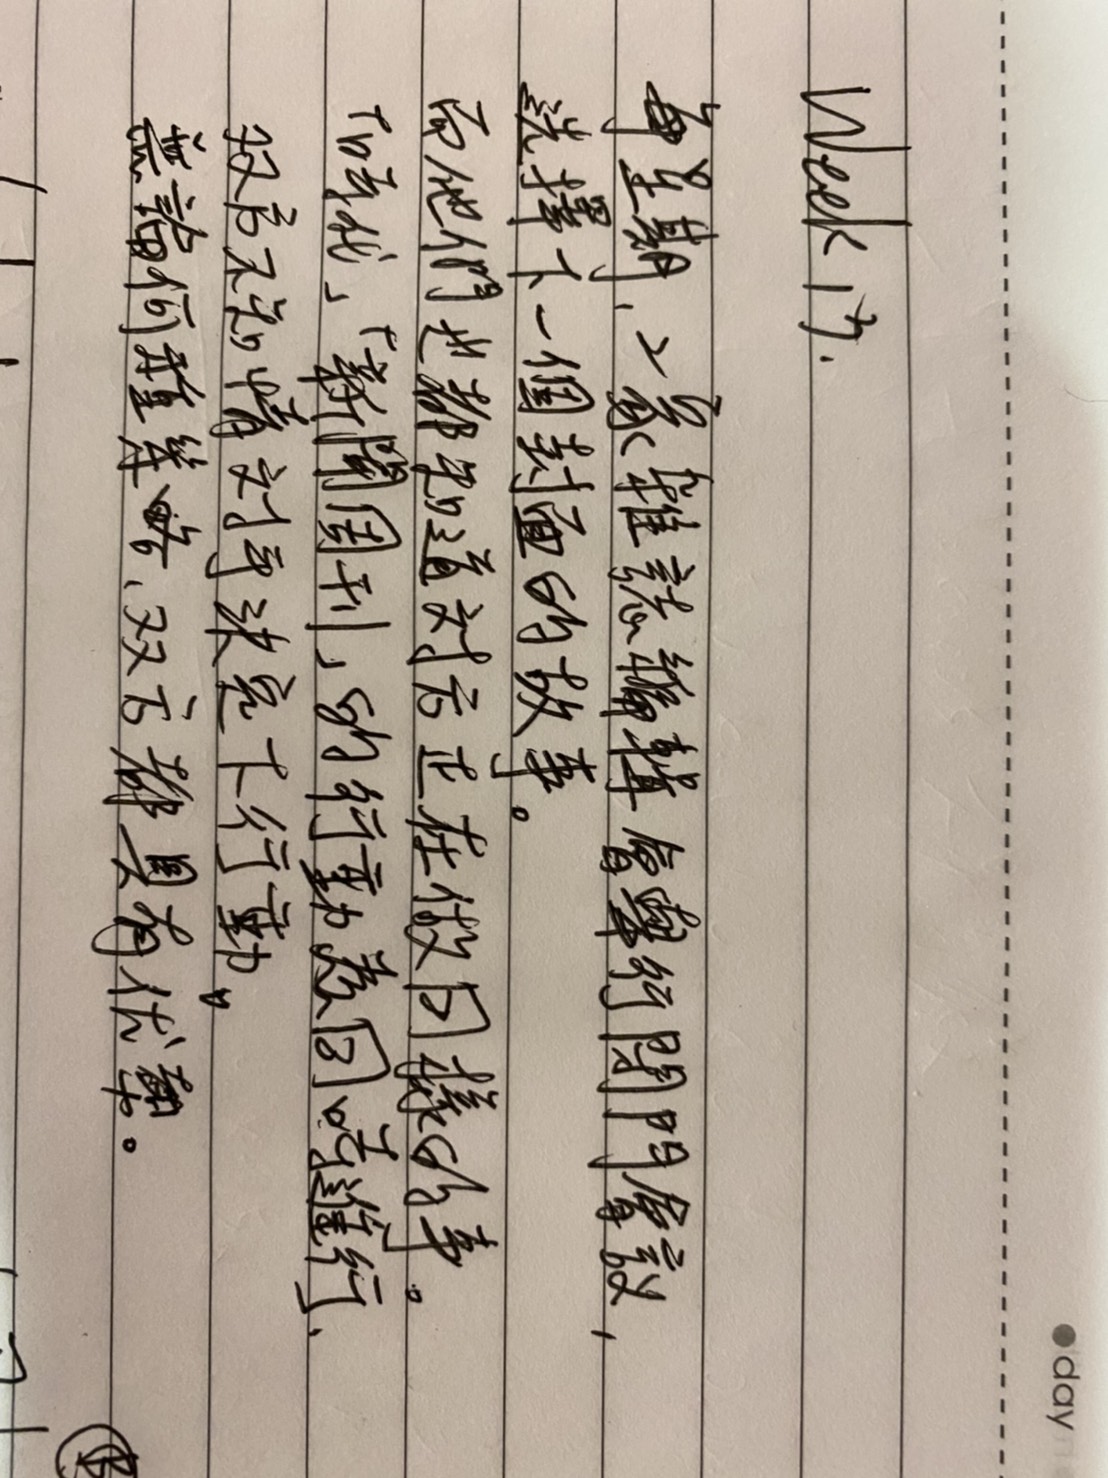 day
Week 17.
每星期,2家雜誌編輯會舉行閉門會議,
選擇下一個封面的故事。
而他們也都知道对方正在做同樣的事。
「時代」「新聞周刊」的行動為同時進行、
双方不知情对手決定下行動。
無論何種策略、双方都具有优勢。
B